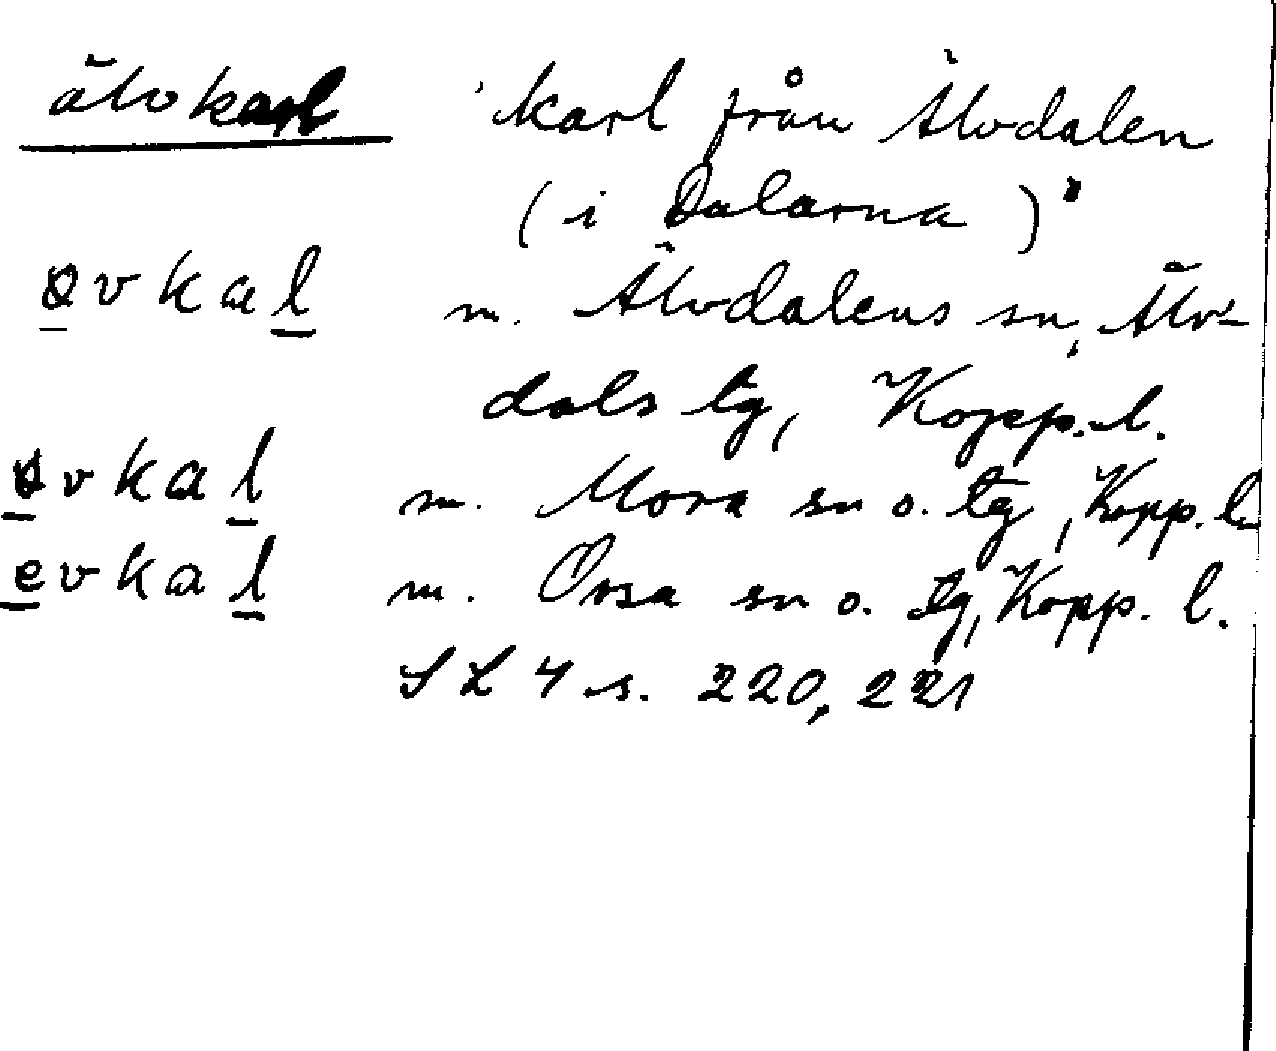 älvkarl 'karl från Älvdalen
(i Dalarna)'
øvkal m. Älvdalens sn, Älv-
dals tg, Kopp. l.
øvkal m. Mora sn o. tg, Kopp. l.
evkal m. Orsa sn o. tg, Kopp. l.
SL 4 s. 220, 221